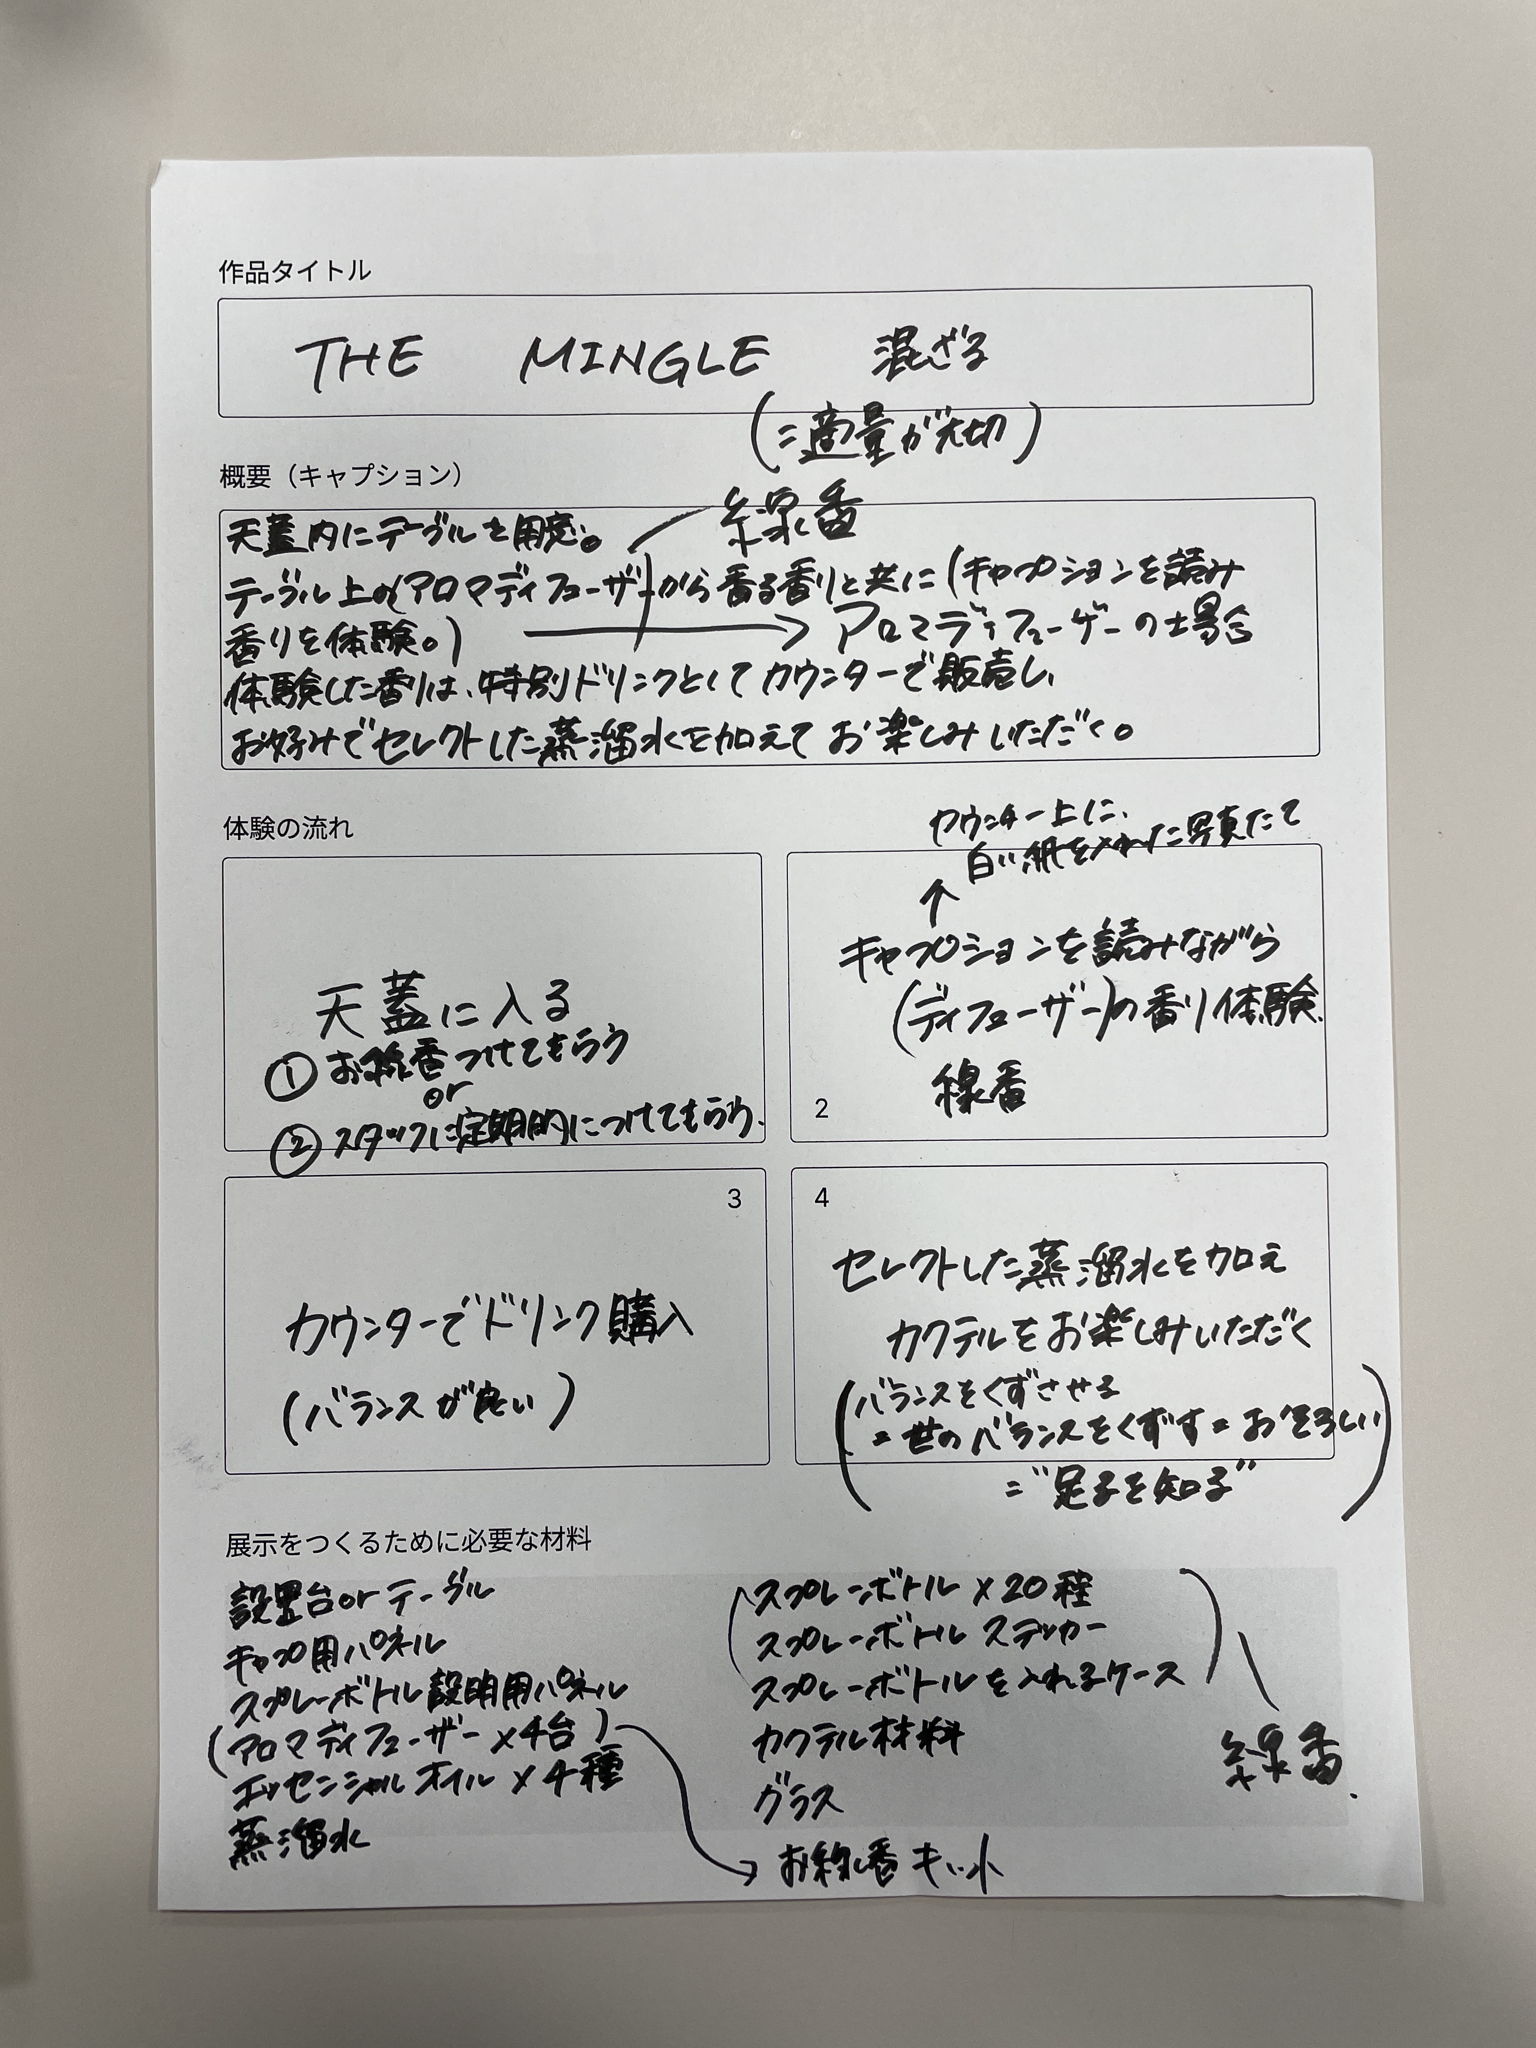 作品タイトル
THE MINGLE 混ざる
(=適量が大切)
概要（キャプション）
線香
天蓋内にテーブルを用意。
テーブル上の(アロマディフューザー)から香る香りと共に(キャプションを読み
香りを体験。) → アロマディフューザーの場合
体験した香りは、特別ドリンクとしてカウンターで販売し、
お好みでセレクトした蒸溜水を加えてお楽しみいただく。
体験の流れ
天蓋に入る
①お線香つけてもらう
or
②スタッフに定期的につけてもらう.
カウンター上に、
白い紙を入れた写真たて
↑
キャプションを読みながら
(ディフューザー)の香り体験.
線香
2
3
カウンターでドリンク購入
(バランスが良い)
4
セレクトした蒸溜水を加え
カクテルをお楽しみいただく
(バランスをくずさせる
=世のバランスをくずす=おそろしい
="足るを知る")
展示をつくるために必要な材料
設置台orテーブル
キャプ用パネル
スプレーボトル説明用パネル
(アロマディフューザー×4台)
エッセンシャルオイル×4種
蒸溜水
(スプレーボトル×20種
スプレーボトル ステッカー
スプレーボトルを入れるケース)
カクテル材料
グラス
→ お線香キット
線香.